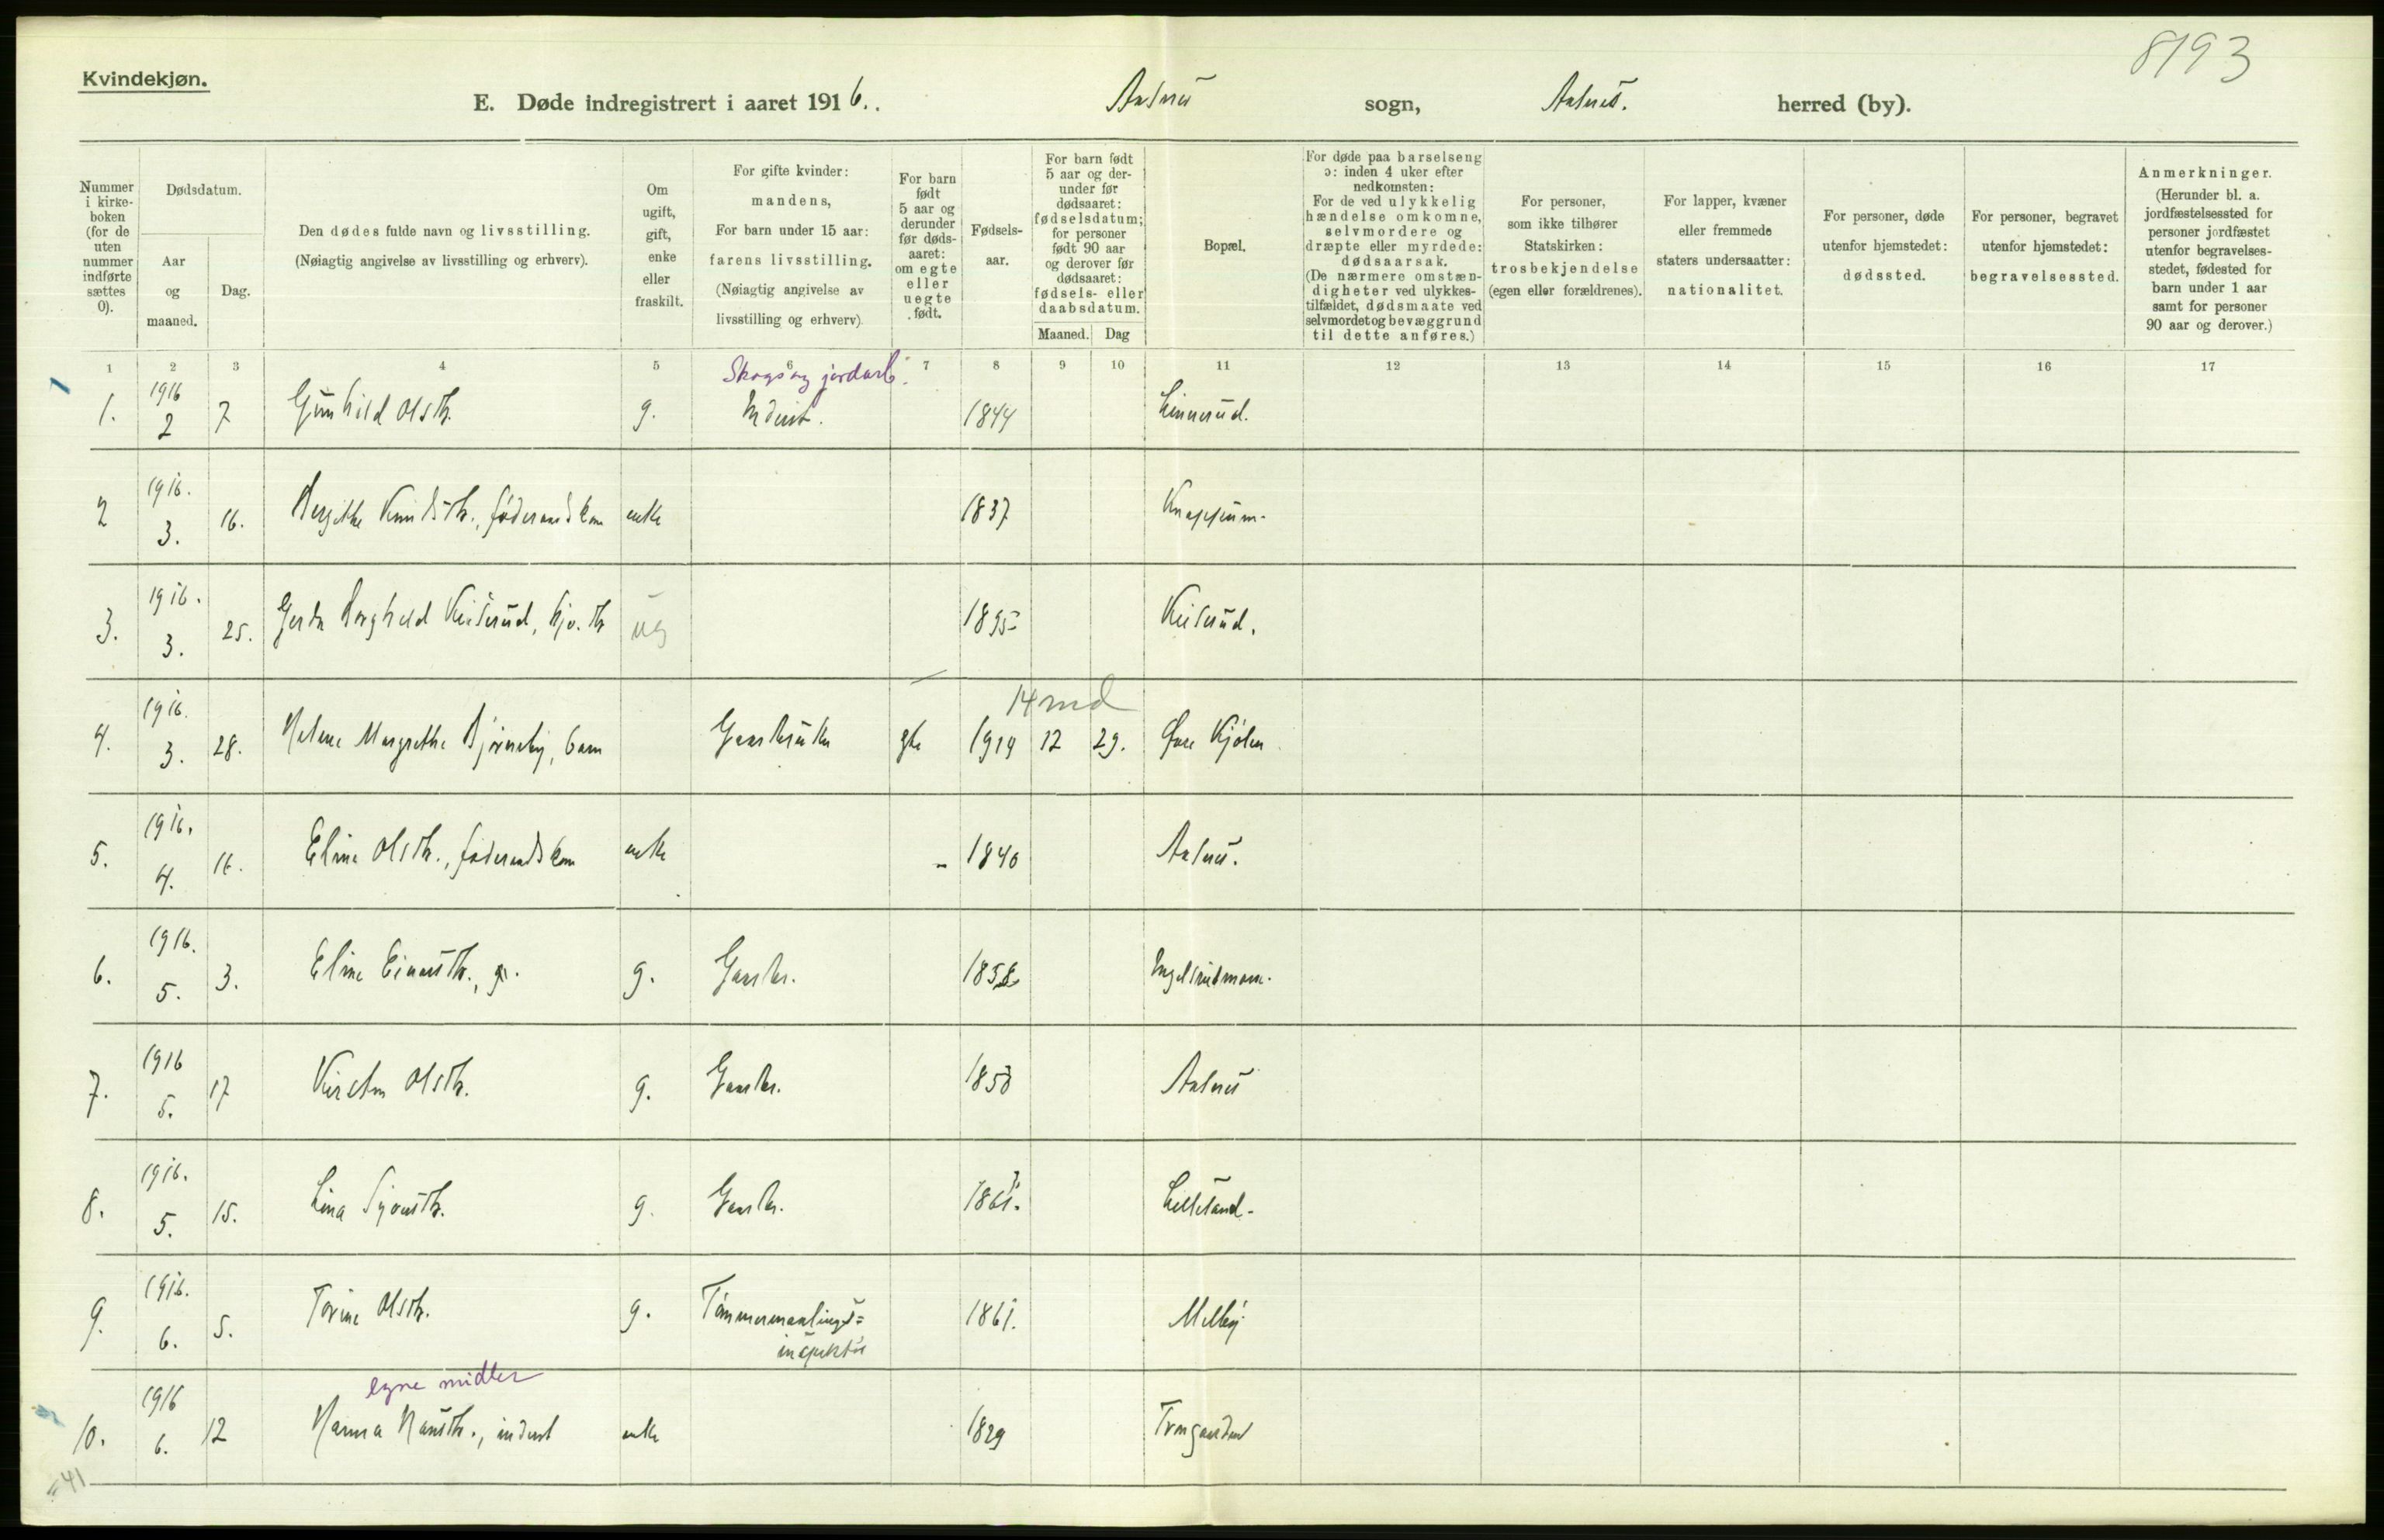 8193
Kvindekjøn.
E. Døde indregistrert i aaret 1916. Aasnes sogn, Aasnes. herred (by).
Nummer i kirke-boken (for de uten nummer indførte sættes 0).
Dødsdatum.
Aar og maaned.
Dag.
Den dødes fulde navn og livsstilling.
(Nøiagtig angivelse av livsstilling og erhverv).
Om ugift, gift, enke eller fraskilt.
For gifte kvinder: mandens, For barn under 15 aar: farens livsstilling. (Nøiagtig angivelse av livsstilling og erhverv).
For barn født 5 aar og derunder før døds-aaret: om egte eller uegte født.
Fødsels-aar.
For barn født 5 aar og der-under før dødsaaret: fødselsdatum; for personer født 90 aar og derover før dødsaaret: fødsels- eller daabsdatum.
Maaned. Dag
Bopæl.
For døde paa barselseng ɔ: inden 4 uker efter nedkomsten: For de ved ulykkelig hændelse omkomne, selvmordere og dræpte eller myrdede: dødsaarsak. (De nærmere omstæn-digheter ved ulykkes-tilfældet, dødsmaate ved selvmordet og bevæggrund til dette anføres.)
For personer, som ikke tilhører Statskirken: trosbekjendelse (egen eller forældrenes).
For lapper, kvæner eller fremmede staters undersaatter: nationalitet.
For personer, døde utenfor hjemstedet: dødssted.
For personer, begravet utenfor hjemstedet: begravelsessted.
Anmerkninger. (Herunder bl. a. jordfæstelsessted for personer jordfæstet utenfor begravelses-stedet, fødested for barn under 1 aar samt for personer 90 aar og derover.)
1 2 3 4 5 6 7 8 9 10 11 12 13 14 15 16 17
Skogs og jordarb.
1. 1916 2 7 Gunhild Olsdtr. g. Inderst. 1844 Linnerud.
2 1916. 3. 16. Bergithe Knudsdtr., føderaadskone enke 1837 Knappum.
3. 1916. 3. 25. Gerda Borghild Keiserud, Gjv. dtr ug 1895 Keiserud.
14 md
4. 1916. 3. 28. Helene Margrethe Bjørneby, barn Gaardbruker gte 1914 12 29. Øvre Kjølen
5. 1916. 4. 16. Eline Olsdtr., føderaadskone enke 1840 Aasnes.
6. 1916. 5. 3. Eline Einarsdtr., g. g. Gaardbr. 1858 Engelsrudmoen.
7. 1916 5. 17 Kirsten Olsdtr. g. Gaardbr. 1850 Aasnes
8. 1916. 5. 15. Lina Syversdtr. g. Gaardbr. 1861. Lillesand.
9. 1916. 6. 5. Torine Olsdtr. g. Tømmermaalings=
inspektør 1861. Melby
egne midler
10. 1916 6. 12 Hanna Hansdtr., inderst enke 1829 Torgaarden
=41